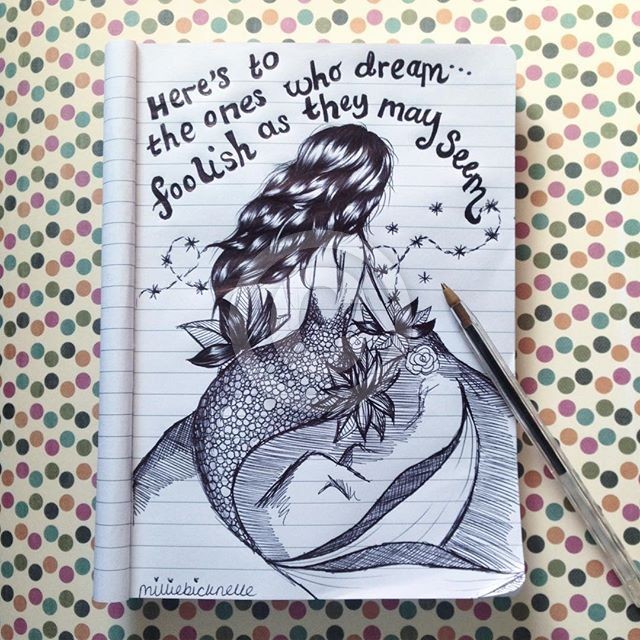 Here's to
the ones who dream...
foolish as they may seem
milliebicknelle